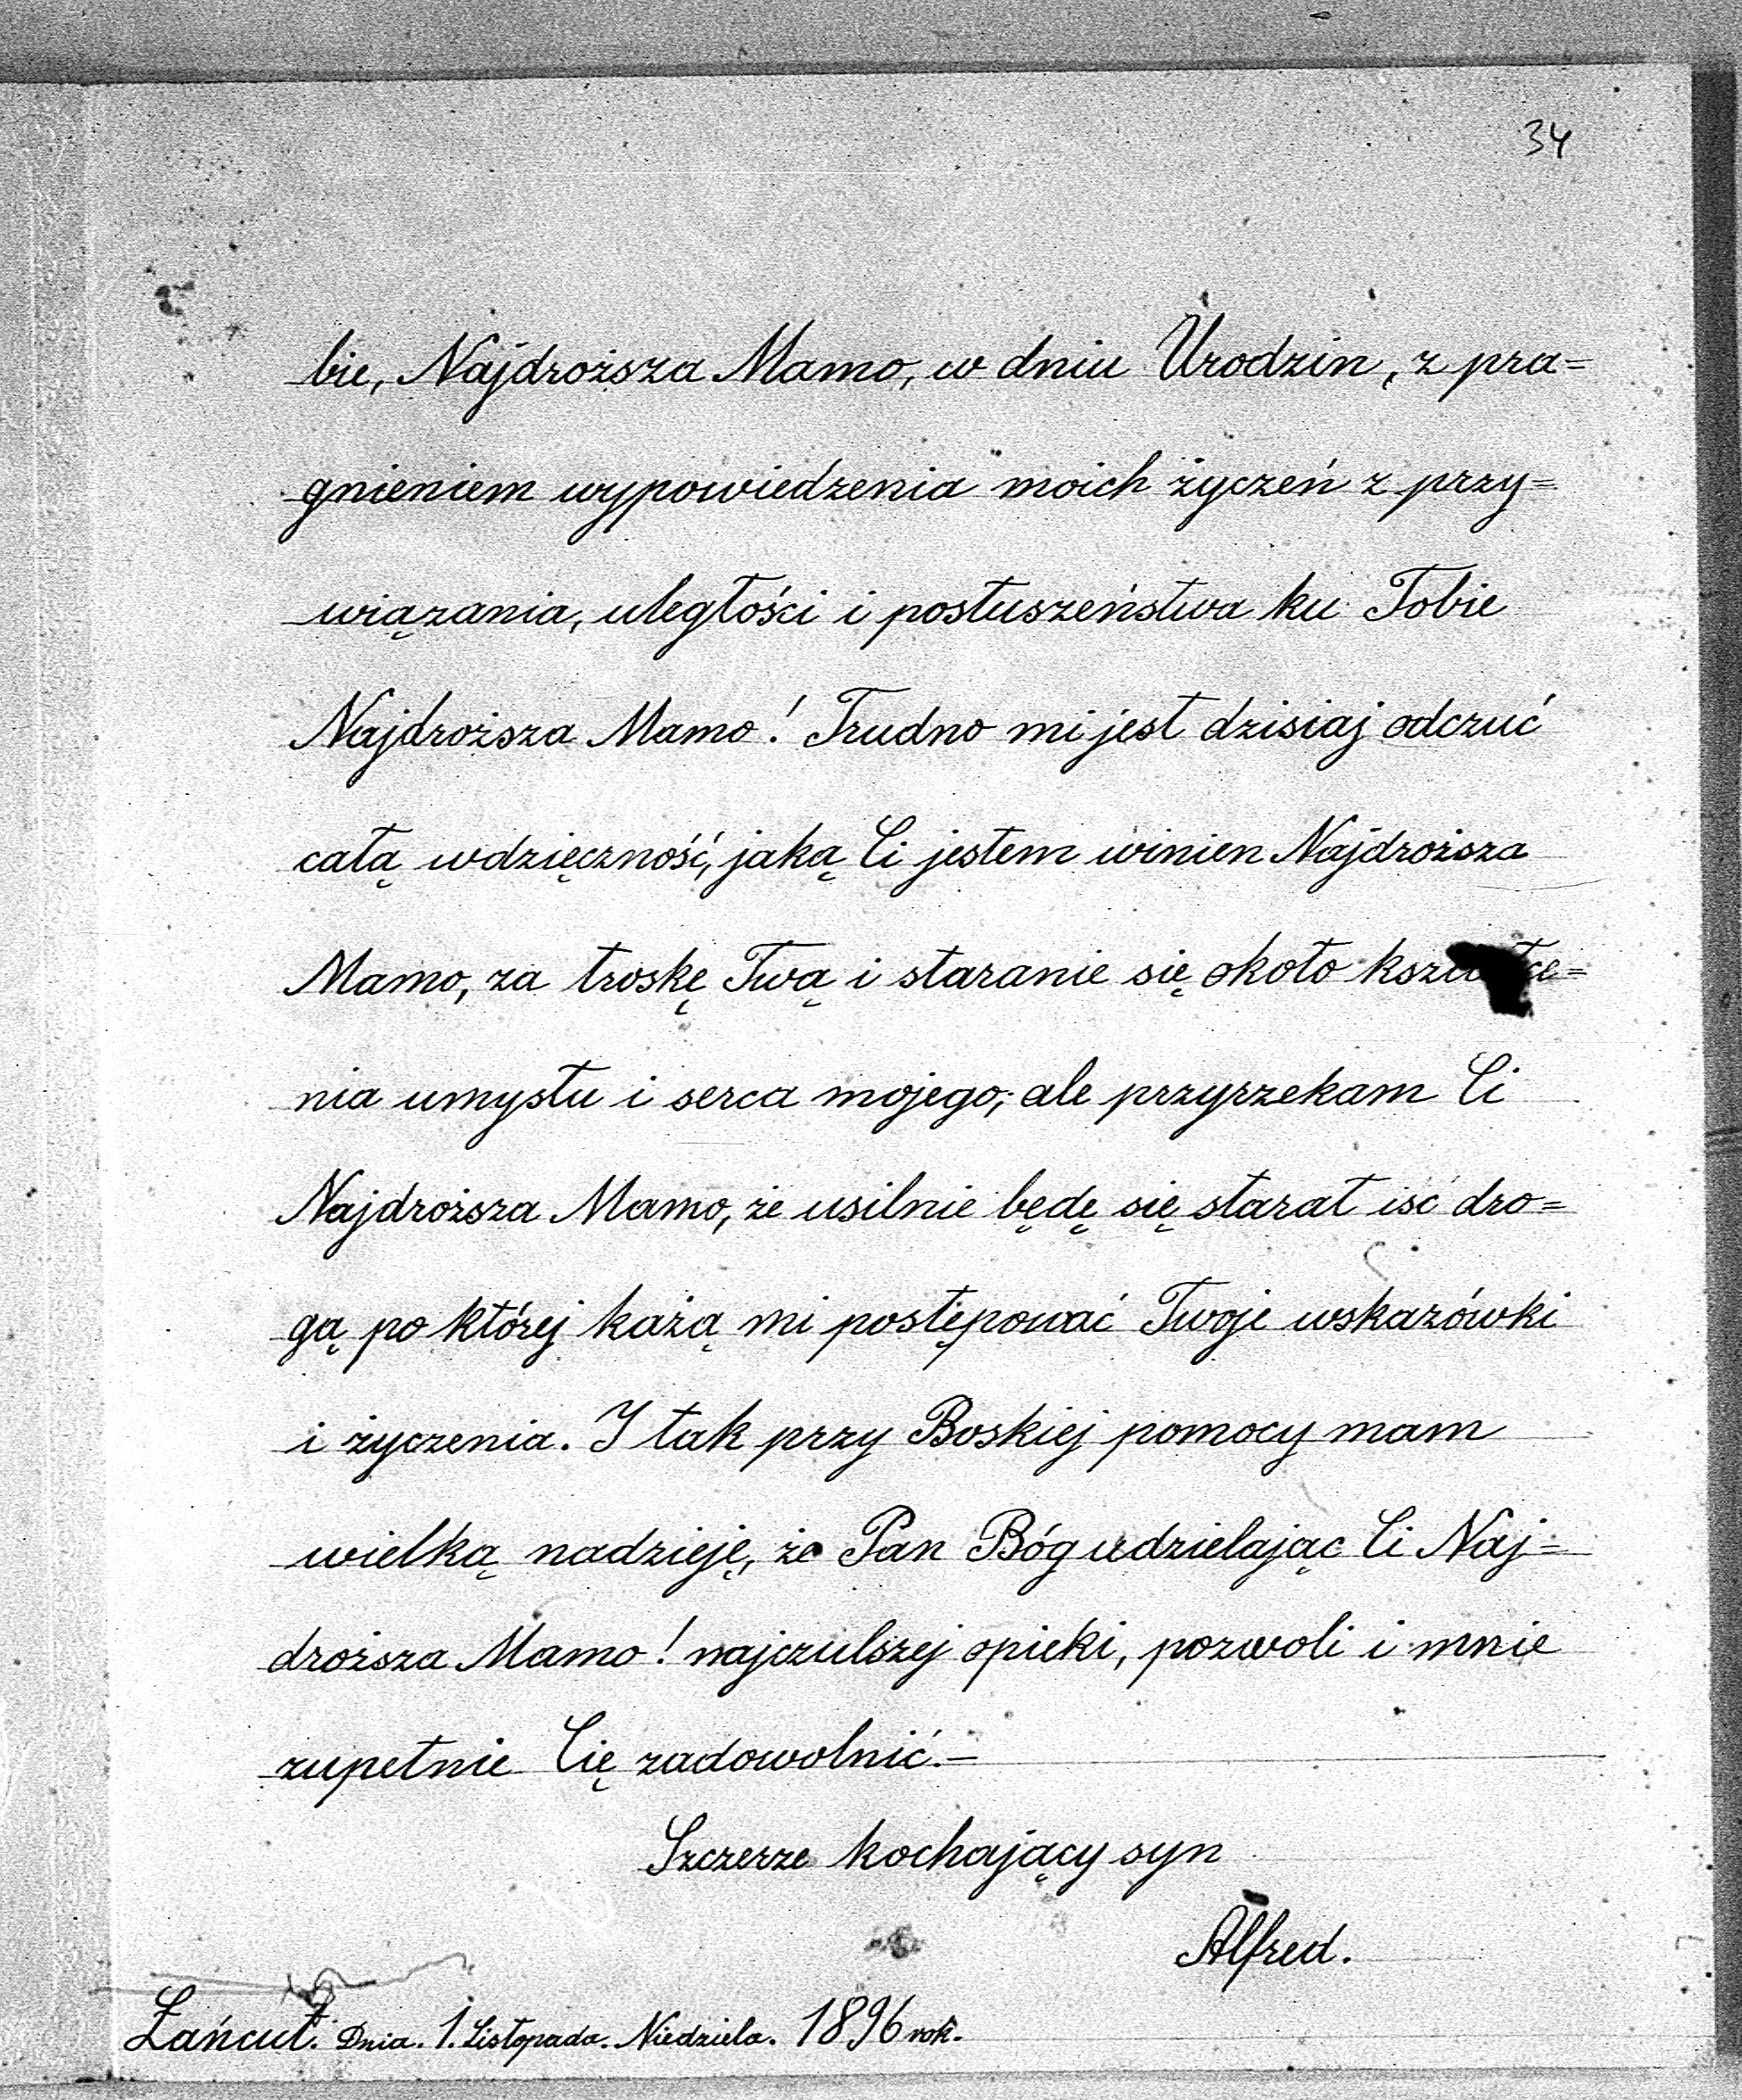 34
bie, Najdroższa Mamo, w dniu Urodzin, z pra=
gnieniem wypowiedzenia moich życzeń z przy=
wiązania, uległości i posłuszeństwa ku Tobie
Najdroższa Mamo! Trudno mi jest dzisiaj odczuć
całą wdzięczność, jaką Ci jestem winien Najdroższa
Mamo, za troskę Twą i staranie się około kształce=
nia umysłu i serca mojego; ale przyrzekam Ci
Najdroższa Mamo, że usilnie będę się starał iść dro=
gą po której każą mi postępować Twoje wskazówki
i życzenia. I tak przy Boskiej pomocy mam
wielką nadzieję, że Pan Bóg udzielając Ci Naj=
droższa Mamo! najczulszej opieki, pozwoli i mnie
zupełnie Cię zadowolnić.=
Szczerze kochający syn
Alfred.
Łańcut. Dnia. 1. Listopada. Niedziela. 1896 rok.